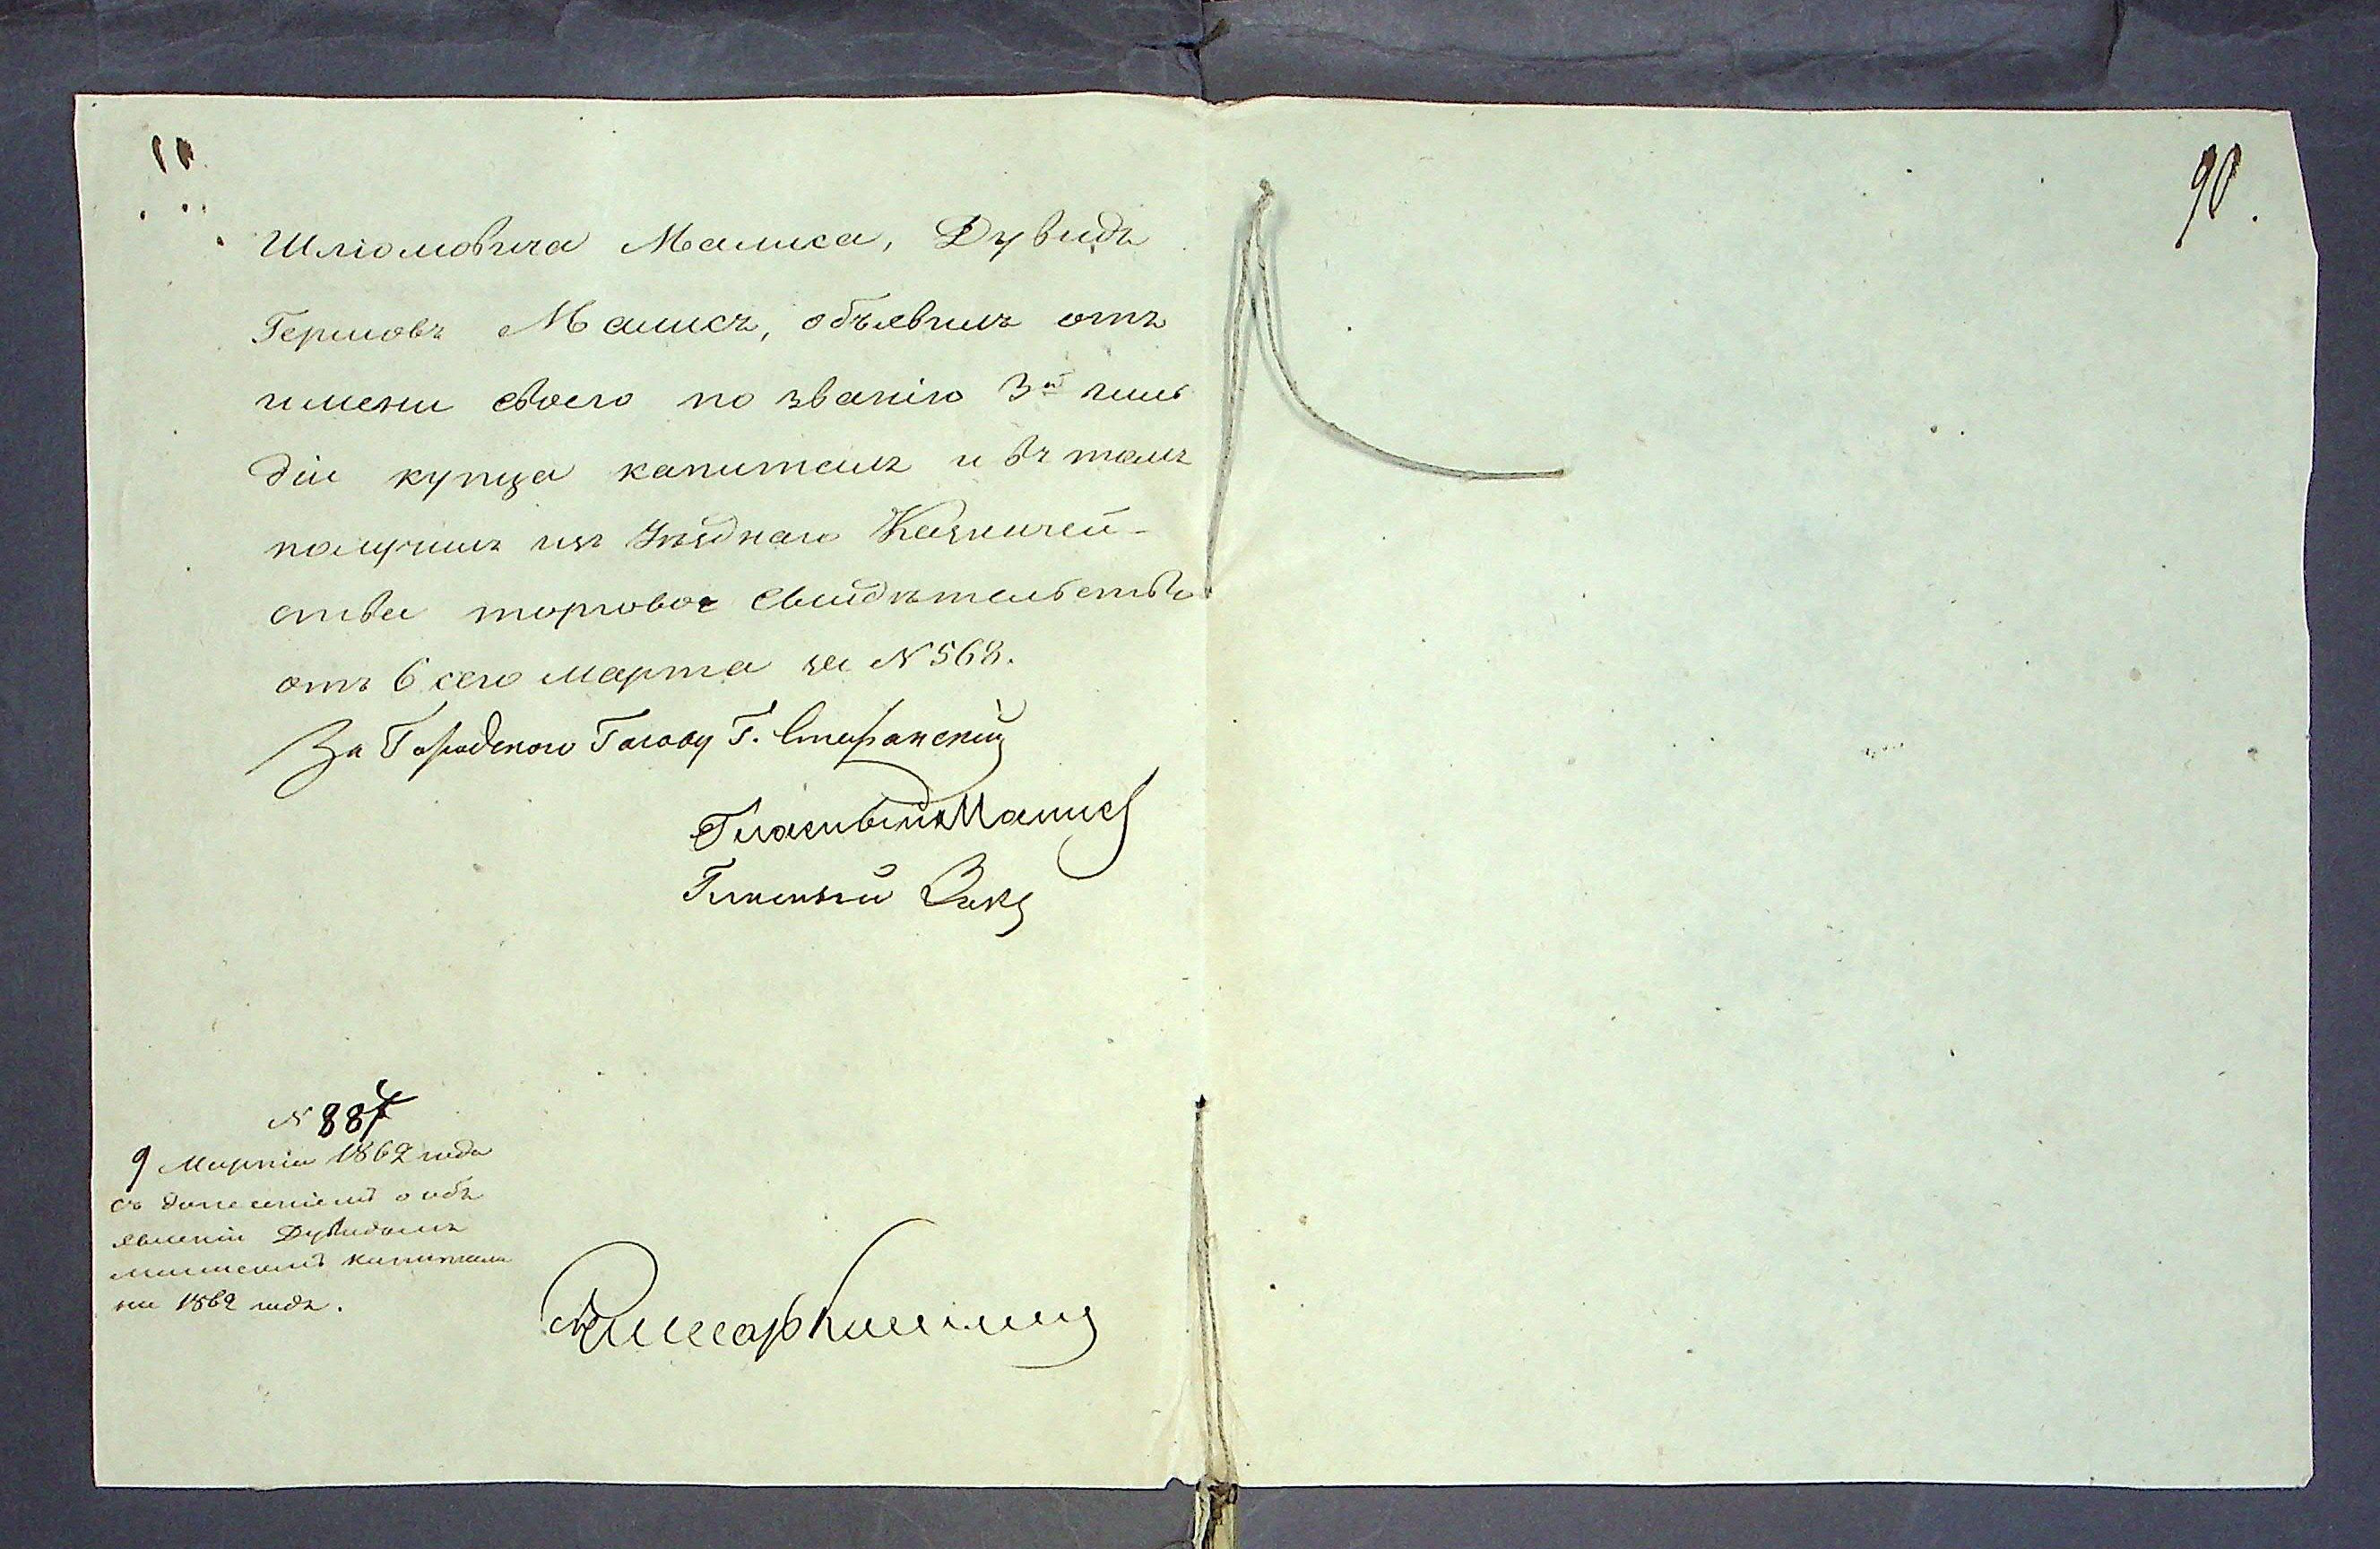 90.
Шліомовича Малиса, Дувидъ
Гершовъ Малисъ, объявилъ отъ
имени своего по званію 3й гиль
діи купца капиталъ и въ томъ
получилъ изъ Уѣзднаго Казначей-
ства торговое свидѣтельство
отъ 6 сего Марта за N 568.
За Городскаго Голову Г.
Гласный Малисъ
Гласный
N 887
9 Марта 1862 года
съ донесеніемъ о объ
явленіи Дувидомъ
Малисомъ капитала
на 1862 годъ.